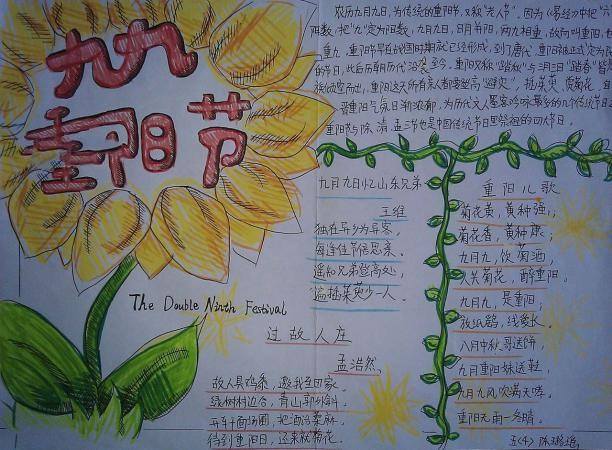 九九
重阳节
农历九月九日，为传统的重阳节，又称“老人节”。因为《易经》中把“六”
阳数，把“九”定为阳数，九月九日，日月并阳，两九相重，故而叫重阳，也
重九。重阳节早在战国时期就已经形成，到了唐代，重阳被正式定为民
的节日，此后历朝历代沿袭至今。重阳又称“踏秋”与三月三日“踏春”皆是
族倾室而出，重阳这天所有亲人都要登高“避灾”，插茱萸、赏菊花。自
重阳节与除、清、盂三节也是中国传统节日里祭祖的四大节日。
九月九日忆山东兄弟
王维
独在异乡为异客，
每逢佳节倍思亲。
遥知兄弟登高处，
遍插茱萸少一人。
The Double Ninth Festival
过故人庄
孟浩然
故人具鸡黍，邀我至田家。
绿树村边合，青山郭外斜。
开轩面场圃，把酒话桑麻。
待到重阳日，还来就菊花。
重阳儿歌
菊花黄，黄种强；
菊花香，黄种康；
九月九，饮菊酒，
人共菊花，醉重阳。
九月九，是重阳；
放纸鹞，线爱长。
八月中秋哥送饼，
九月重阳妹送鞋，
九月九风吹满天哮。
重阳无雨一冬晴。
五〈4〉陈